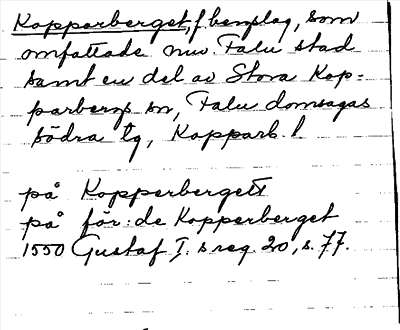 Kopparberget, f. bergslag, som
omfattade nuv. Falu stad
samt en del av Stora Kop=
parbergs sn, Falu domsagas
södra tg, Kopparb. l.
på Kopperbergett
på för:de Kopperberget
1550 Gustaf I:s reg. 20, s. 77.